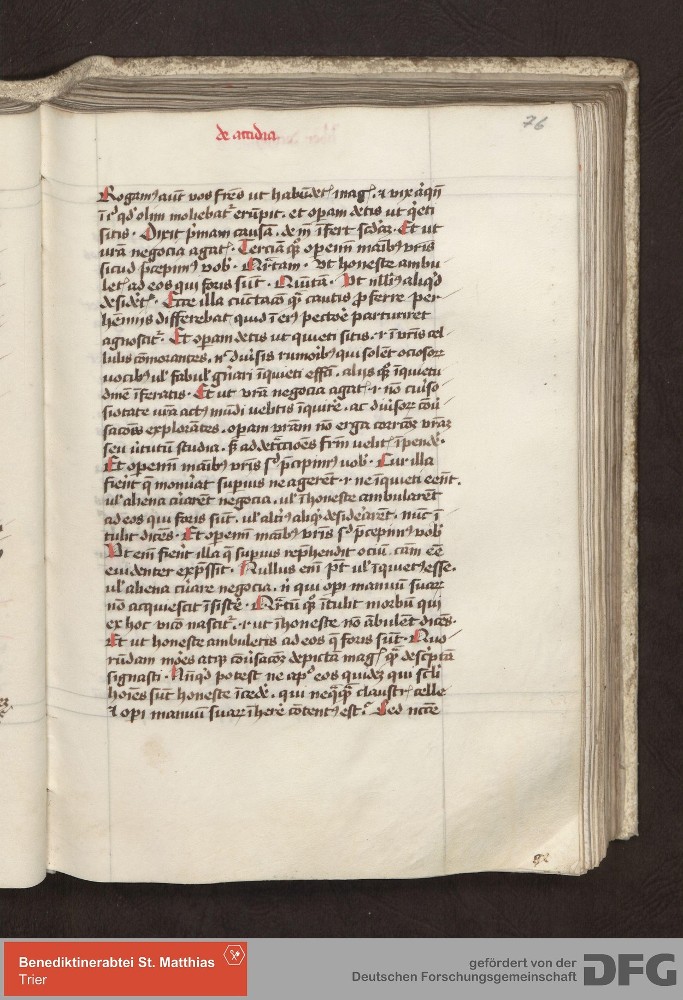 de accidia
76
Rogam9 aut vos fres ut habundet mag. & vix aqn
qd olim moliebat erupit. et opam detis ut qeti
sitis. Dixit pmam causa. de m ifert scdaz. Et ut
vra negocia agat. Tercia qz operem maib9 vris
sicud pcepim9 vob. Qrtam. Vt honeste ambu
let ad eos qui foris sut. Quita. Vt nlli9 aliqd
desidet. Ecce illa cuctaco qz cautis p ferre per
henniis differebat quid i ei9 pectore parturiret
agnoscit. Et opam detis ut quieti sitis. i. i vris cel
lulis comorantes. nc diusis rumorib9 qui solet ociosorz
vocib9 ul fabul gnari inquieti effci. alios qz iquietu
dine iferatis. Et ut vra negocia agat. i. no curio
siotate vra act9 mudi velitis iquire. ac diusorz cou
sacoes explorates. opam vram no erga correcoz vraz
seu ututu studia. sz ad detctioes frm velit ipende.
Et operem maib9 vris sic pcepim9 vob. Cur illa
fieret q monuat superius ne ageret. i. ne iquieti eent.
ul aliena curaret negocia. ul ihoneste ambularet
ad eos qui foris sut. ul alti9 aliqd desidearet. nuc i
tulit dices. Et operem maib9 vris sic pcepim9 vob
Vt em fieret illa q superius rephendit ociu. cam ee
euidenter expssit. Nullus em pt ul iquiet9 esse.
ul aliena curare negocia. n qui opi manuu suarz
no acquiescit isiste. Qrtu qz itulit morbu qui
ex hoc vico nascit. i. ut ihoneste no abulent dices.
Et ut honeste ambuletis ad eos q foris sut. Quo
rudam moes atqz cousacoes depicta mag qz descpta
signasti. Nuqd potest ne ap eos quidez qui scli
hoies sunt honeste icede. qui neqqz claustr celle
& opi manuu suarz ihere cotent9 est. Sed ncce
92
Benediktinerabtei St. Matthias
Trier
gefördert von der
Deutschen Forschungsgemeinschaft
DFG